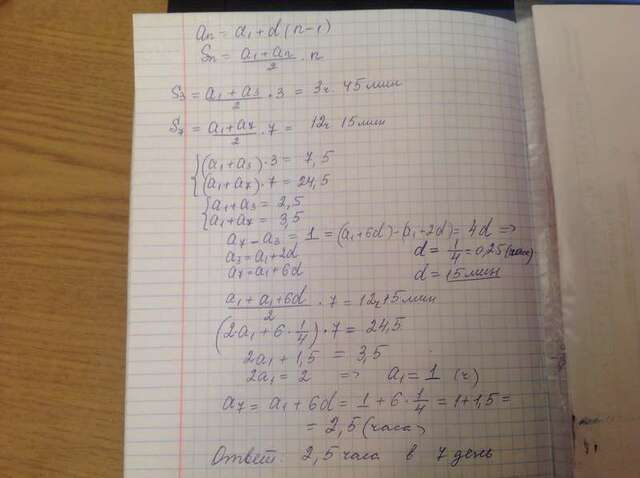 an = a1 + d(n-1)
Sn = (a1 + an)/2 · n
S3 = (a1 + a3)/2 · 3 = 3ч 45 мин
S7 = (a1 + a7)/2 · 7 = 12ч 15 мин
{(a1 + a3) · 3 = 7,5
(a1 + a7) · 7 = 24,5
{a1 + a3 = 2,5
a1 + a7 = 3,5
a7 - a3 = 1 = (a1 + 6d) - (a1 - 2d) = 4d =>
a3 = a1 + 2d d = 1/4 = 0,25 (часа)
a7 = a1 + 6d d = 15 мин
(a1 + a1 + 6d)/2 · 7 = 12ч 15 мин
(2a1 + 6 · 1/4) · 7 = 24,5
2a1 + 1,5 = 3,5
2a1 = 2 => a1 = 1 (ч)
a7 = a1 + 6d = 1 + 6 · 1/4 = 1 + 1,5 =
= 2,5 (часа)
Ответ: 2,5 часа в 7 день